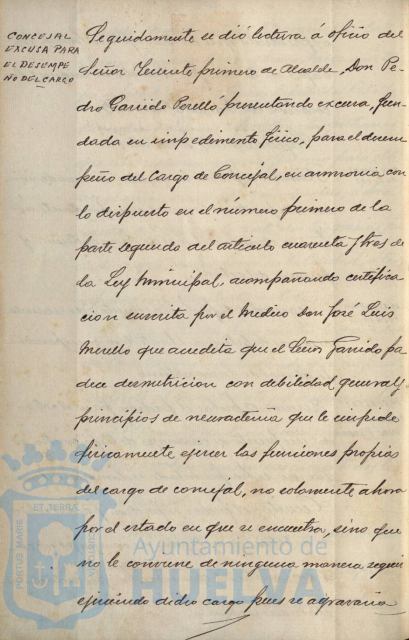 CONCEJAL
EXCUSA PARA
EL DESEMPE
ÑO DEL CARGO
Seguidamente se dió lectura á oficio del
Señor Teniente primero de Alcalde, Don Pe-
dro Garrido Perelló presentando excusa, fun-
dada en impedimento físico, para el desem-
peño del Cargo de Concejal, en armonia con
lo dispuesto en el número primero de la
parte segunda del artículo cuarenta y tres de
la Ley Municipal, acompañando certifica-
cion suscrita por el Medico Don José Luis
que acredita que el Señor Garrido pa-
dece desnutricion con debilidad general y
principios de neurastenia que le impide
fisicamente ejercer las funciones propias
del cargo de concejal, no solamente ahora
por el estado en que se encuentra, sino que
no le conviene de ninguna manera seguir
ejerciendo dicho cargo pues se agravaria
PORTUS MARIS
ET TERRAE
CUSTODIA
Ayuntamiento de
HUELVA